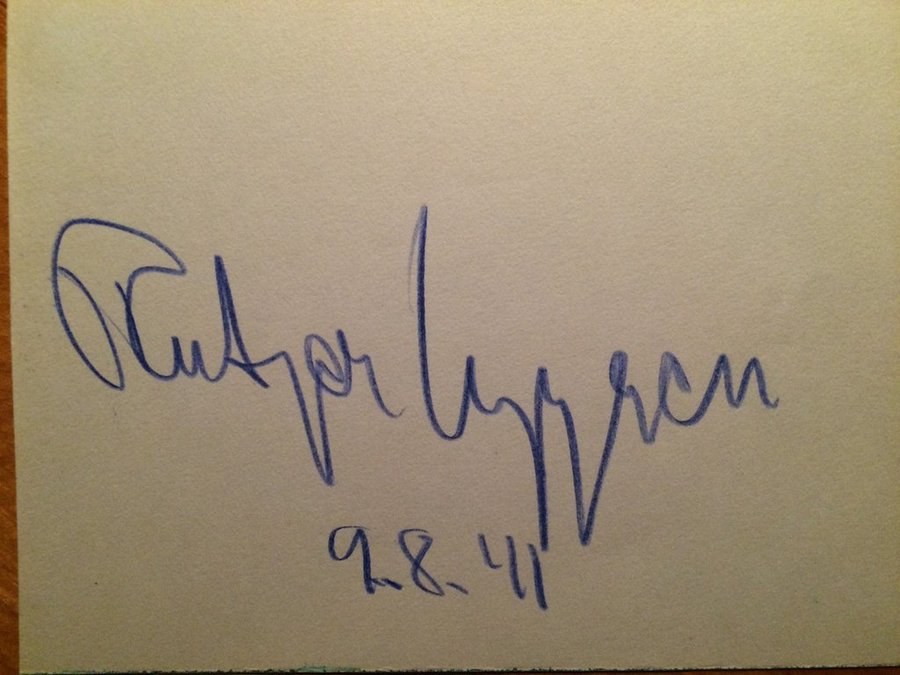 Rutger Uggren
9.8.41